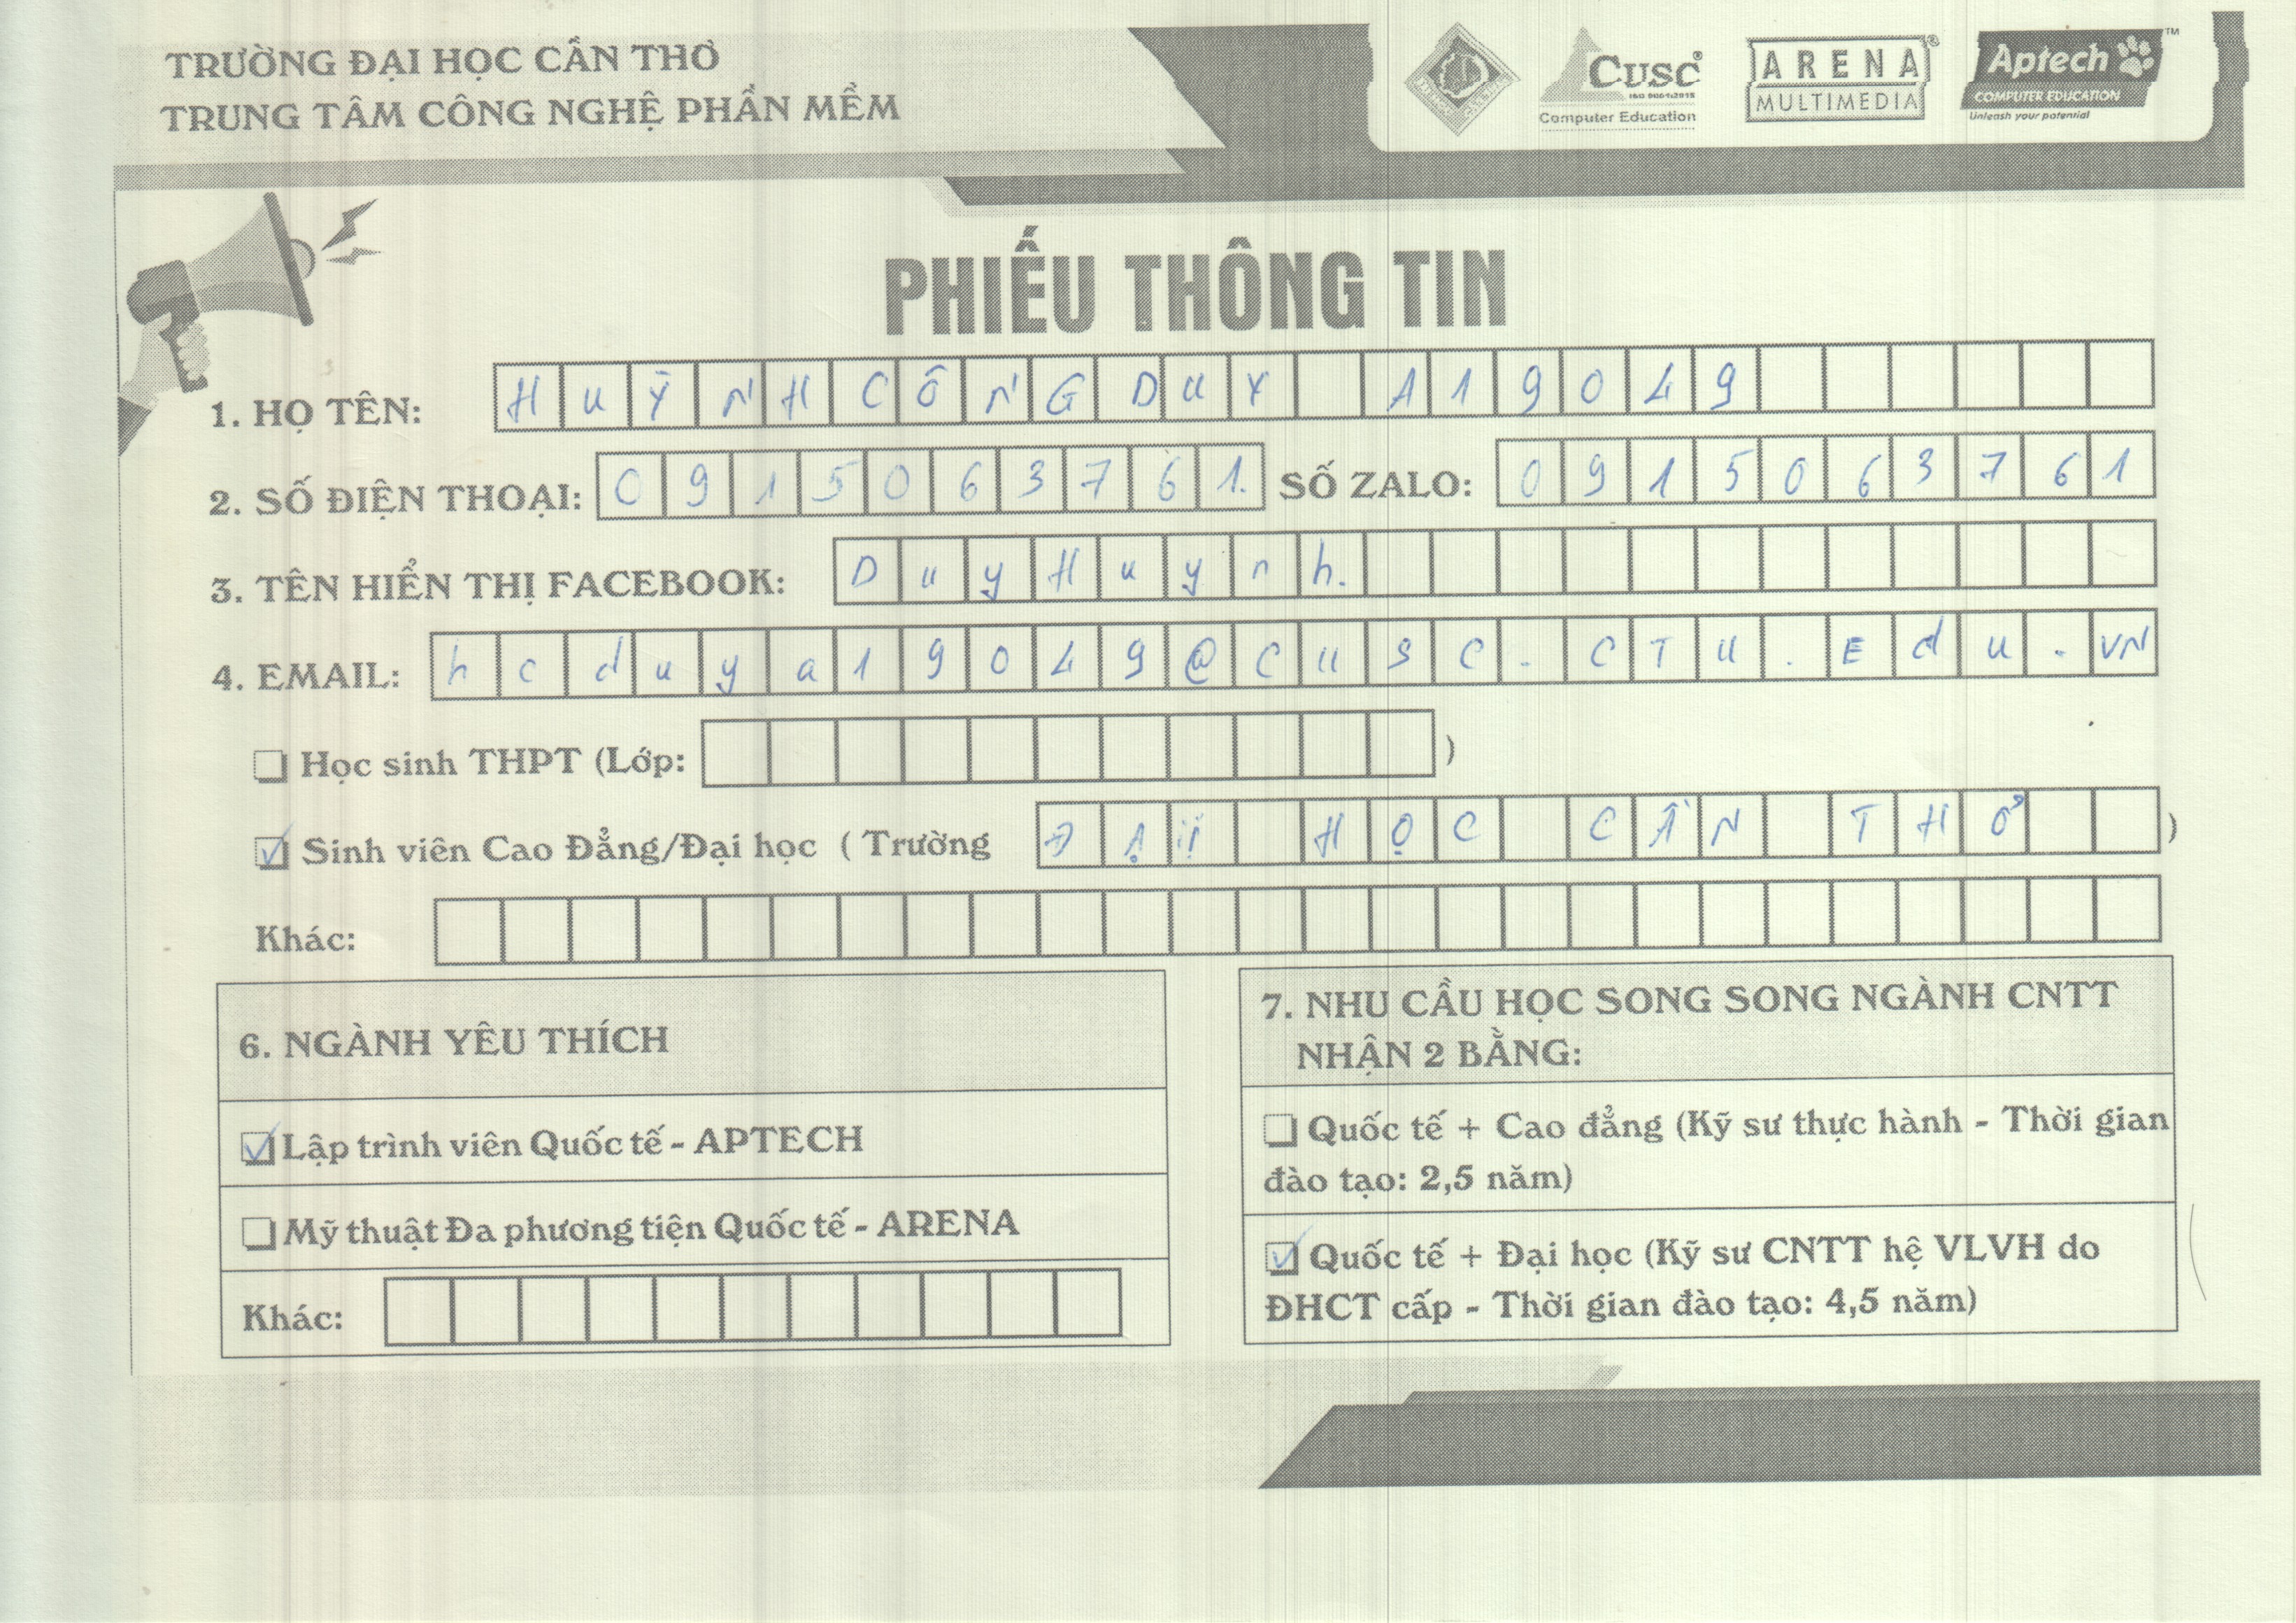 TRƯỜNG ĐẠI HỌC CẦN THƠ
TRUNG TÂM CÔNG NGHỆ PHẦN MỀM
CUSC®
ISO 9001:2015
Computer Education
ARENA®
MULTIMEDIA
Aptech™
COMPUTER EDUCATION
Unleash your potential
PHIẾU THÔNG TIN
1. HỌ TÊN: HUỲNH CÔNG DUY A19049
2. SỐ ĐIỆN THOẠI: 0915063761. SỐ ZALO: 0915063761
3. TÊN HIỂN THỊ FACEBOOK: DuyHuynh.
4. EMAIL: hcduya19049@cusc.CTU.Edu.VN
Học sinh THPT (Lớp: )
Sinh viên Cao Đẳng/Đại học ( Trường ĐẠI HỌC CẦN THƠ )
Khác:
6. NGÀNH YÊU THÍCH
Lập trình viên Quốc tế - APTECH
Mỹ thuật Đa phương tiện Quốc tế - ARENA
Khác:
7. NHU CẦU HỌC SONG SONG NGÀNH CNTT
NHẬN 2 BẰNG:
Quốc tế + Cao đẳng (Kỹ sư thực hành - Thời gian
đào tạo: 2,5 năm)
Quốc tế + Đại học (Kỹ sư CNTT hệ VLVH do
ĐHCT cấp - Thời gian đào tạo: 4,5 năm)